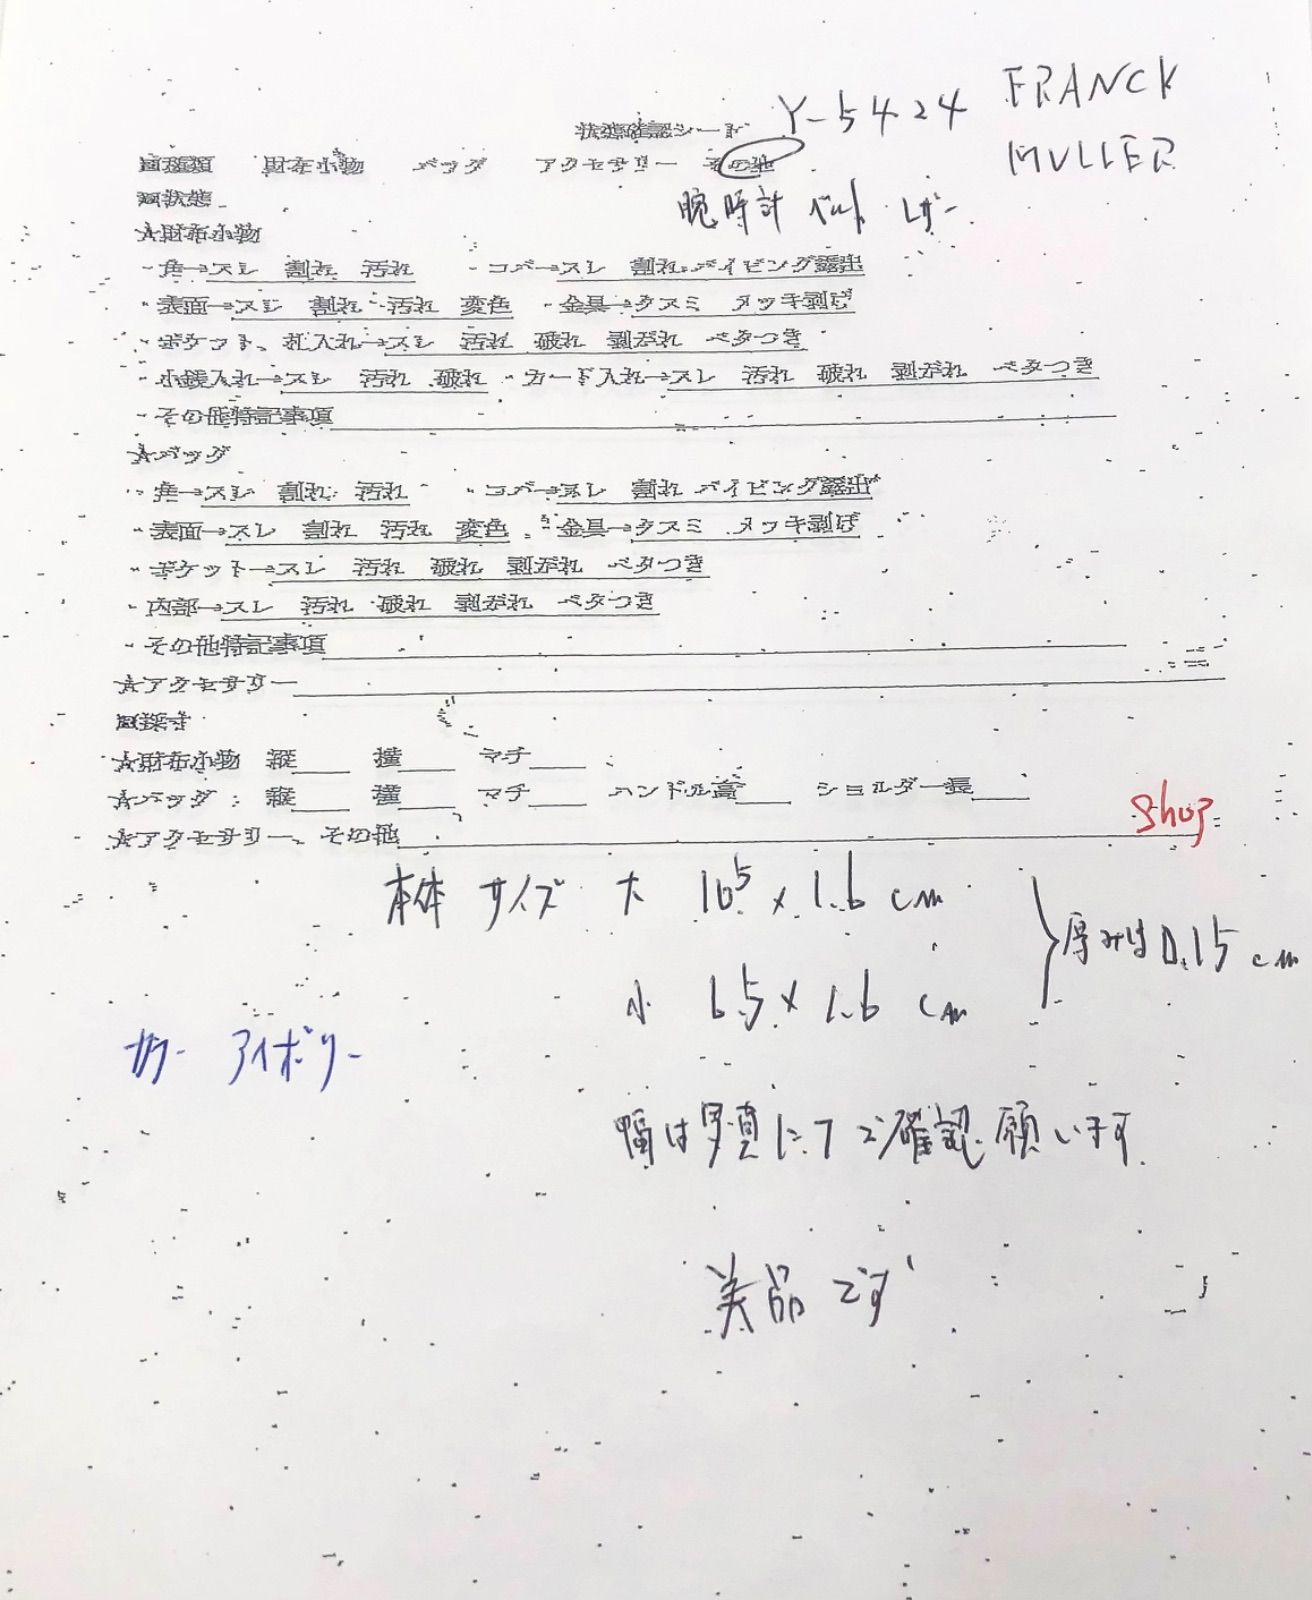 状態確認シート Y-5424 FRANCK
MULLER
■種類 財布小物 バッグ アクセサリー その他
腕時計 ベルト レザー
■状態
☆財布小物
・角→スレ 割れ 汚れ ・コバ→スレ 割れ パイピング露出
・表面→スレ 割れ 汚れ 変色 ・金具→クスミ メッキ剥げ
・ポケット、札入れ→スレ 汚れ 破れ 剥がれ ベタつき
・小銭入れ→スレ 汚れ 破れ ・カード入れ→スレ 汚れ 破れ 剥がれ ベタつき
・その他特記事項
☆バッグ
・角→スレ 割れ 汚れ ・コバ→スレ 割れ パイピング露出
・表面→スレ 割れ 汚れ 変色 ・金具→クスミ メッキ剥げ
・ポケット→スレ 汚れ 破れ 剥がれ ベタつき
・内部→スレ 汚れ 破れ 剥がれ ベタつき
・その他特記事項
☆アクセサリー
■採寸
☆財布小物 縦 横 マチ
☆バッグ: 縦 横 マチ ハンドル高 ショルダー長
☆アクセサリー、その他
shop
本体 サイズ 大 10.5 x 1.6 cm
厚みは 0.15 cm
小 6.5 x 1.6 cm
カラー アイボリー
幅は写真にてご確認願います
美品です